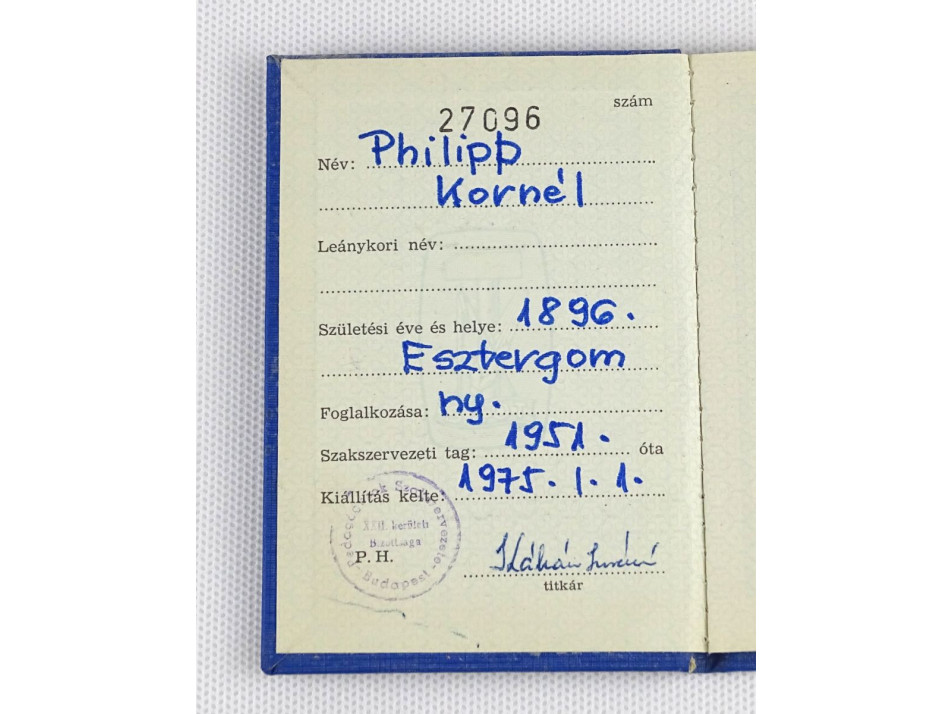 szám
27096
Név: Philipp
Kornél
Leánykori név:
Születési éve és helye: 1896.
Esztergom
Foglalkozása: ny.
Szakszervezeti tag: 1951. óta
Kiállítás kelte: 1975. I. 1.
Pedagógusok Szakszervezete
XXII. kerületi
Bizottsága
Budapest
P. H.
titkár